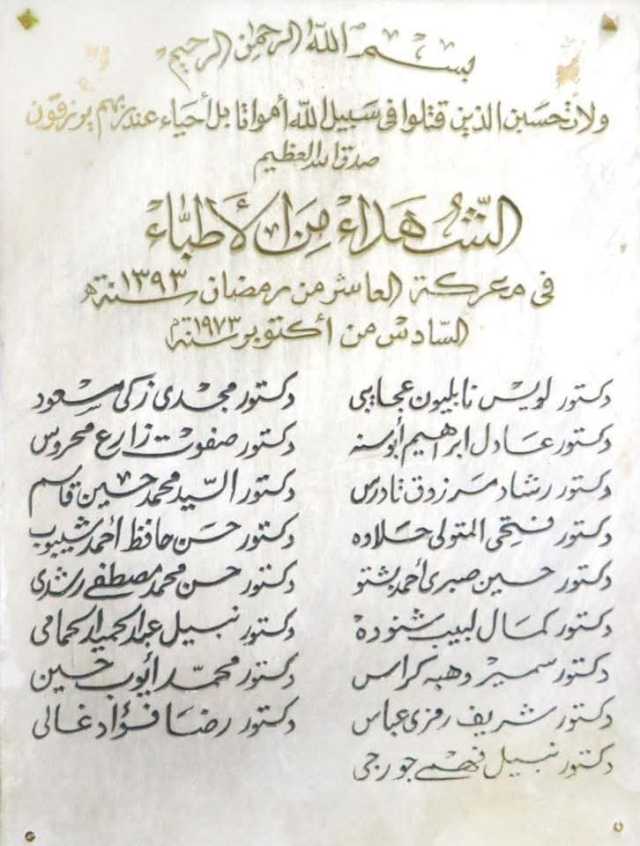 بسم الله الرحمن الرحيم
ولا تحسبن الذين قتلوا في سبيل الله أمواتا بل أحياء عند ربهم يرزقون
صدق الله العظيم
الشهداء من الأطباء
في معركة العاشر من رمضان سنة ١٣٩٣هـ
السادس من أكتوبر سنة ١٩٧٣م
دكتور لويس نابليون عجايبي
دكتور عادل ابراهيم أبوسنه
دكتور رشاد مرزوق تادرس
دكتور فتحي المتولي حلاوه
دكتور حسين صبري أحمد بشتو
دكتور كمال لبيب شنوده
دكتور سمير وهبه كراس
دكتور شريف رمزي عباس
دكتور نبيل فهمي جورجي
دكتور مجدي زكي مسعود
دكتور صفوت زارع محروس
دكتور السيد محمد حسين قاسم
دكتور حسن حافظ أحمد شبيوب
دكتور حسن محمد مصطفى رشدي
دكتور نبيل عبد الحميد الحمامي
دكتور محمد أيوب حسين
دكتور رضا فؤاد غالي